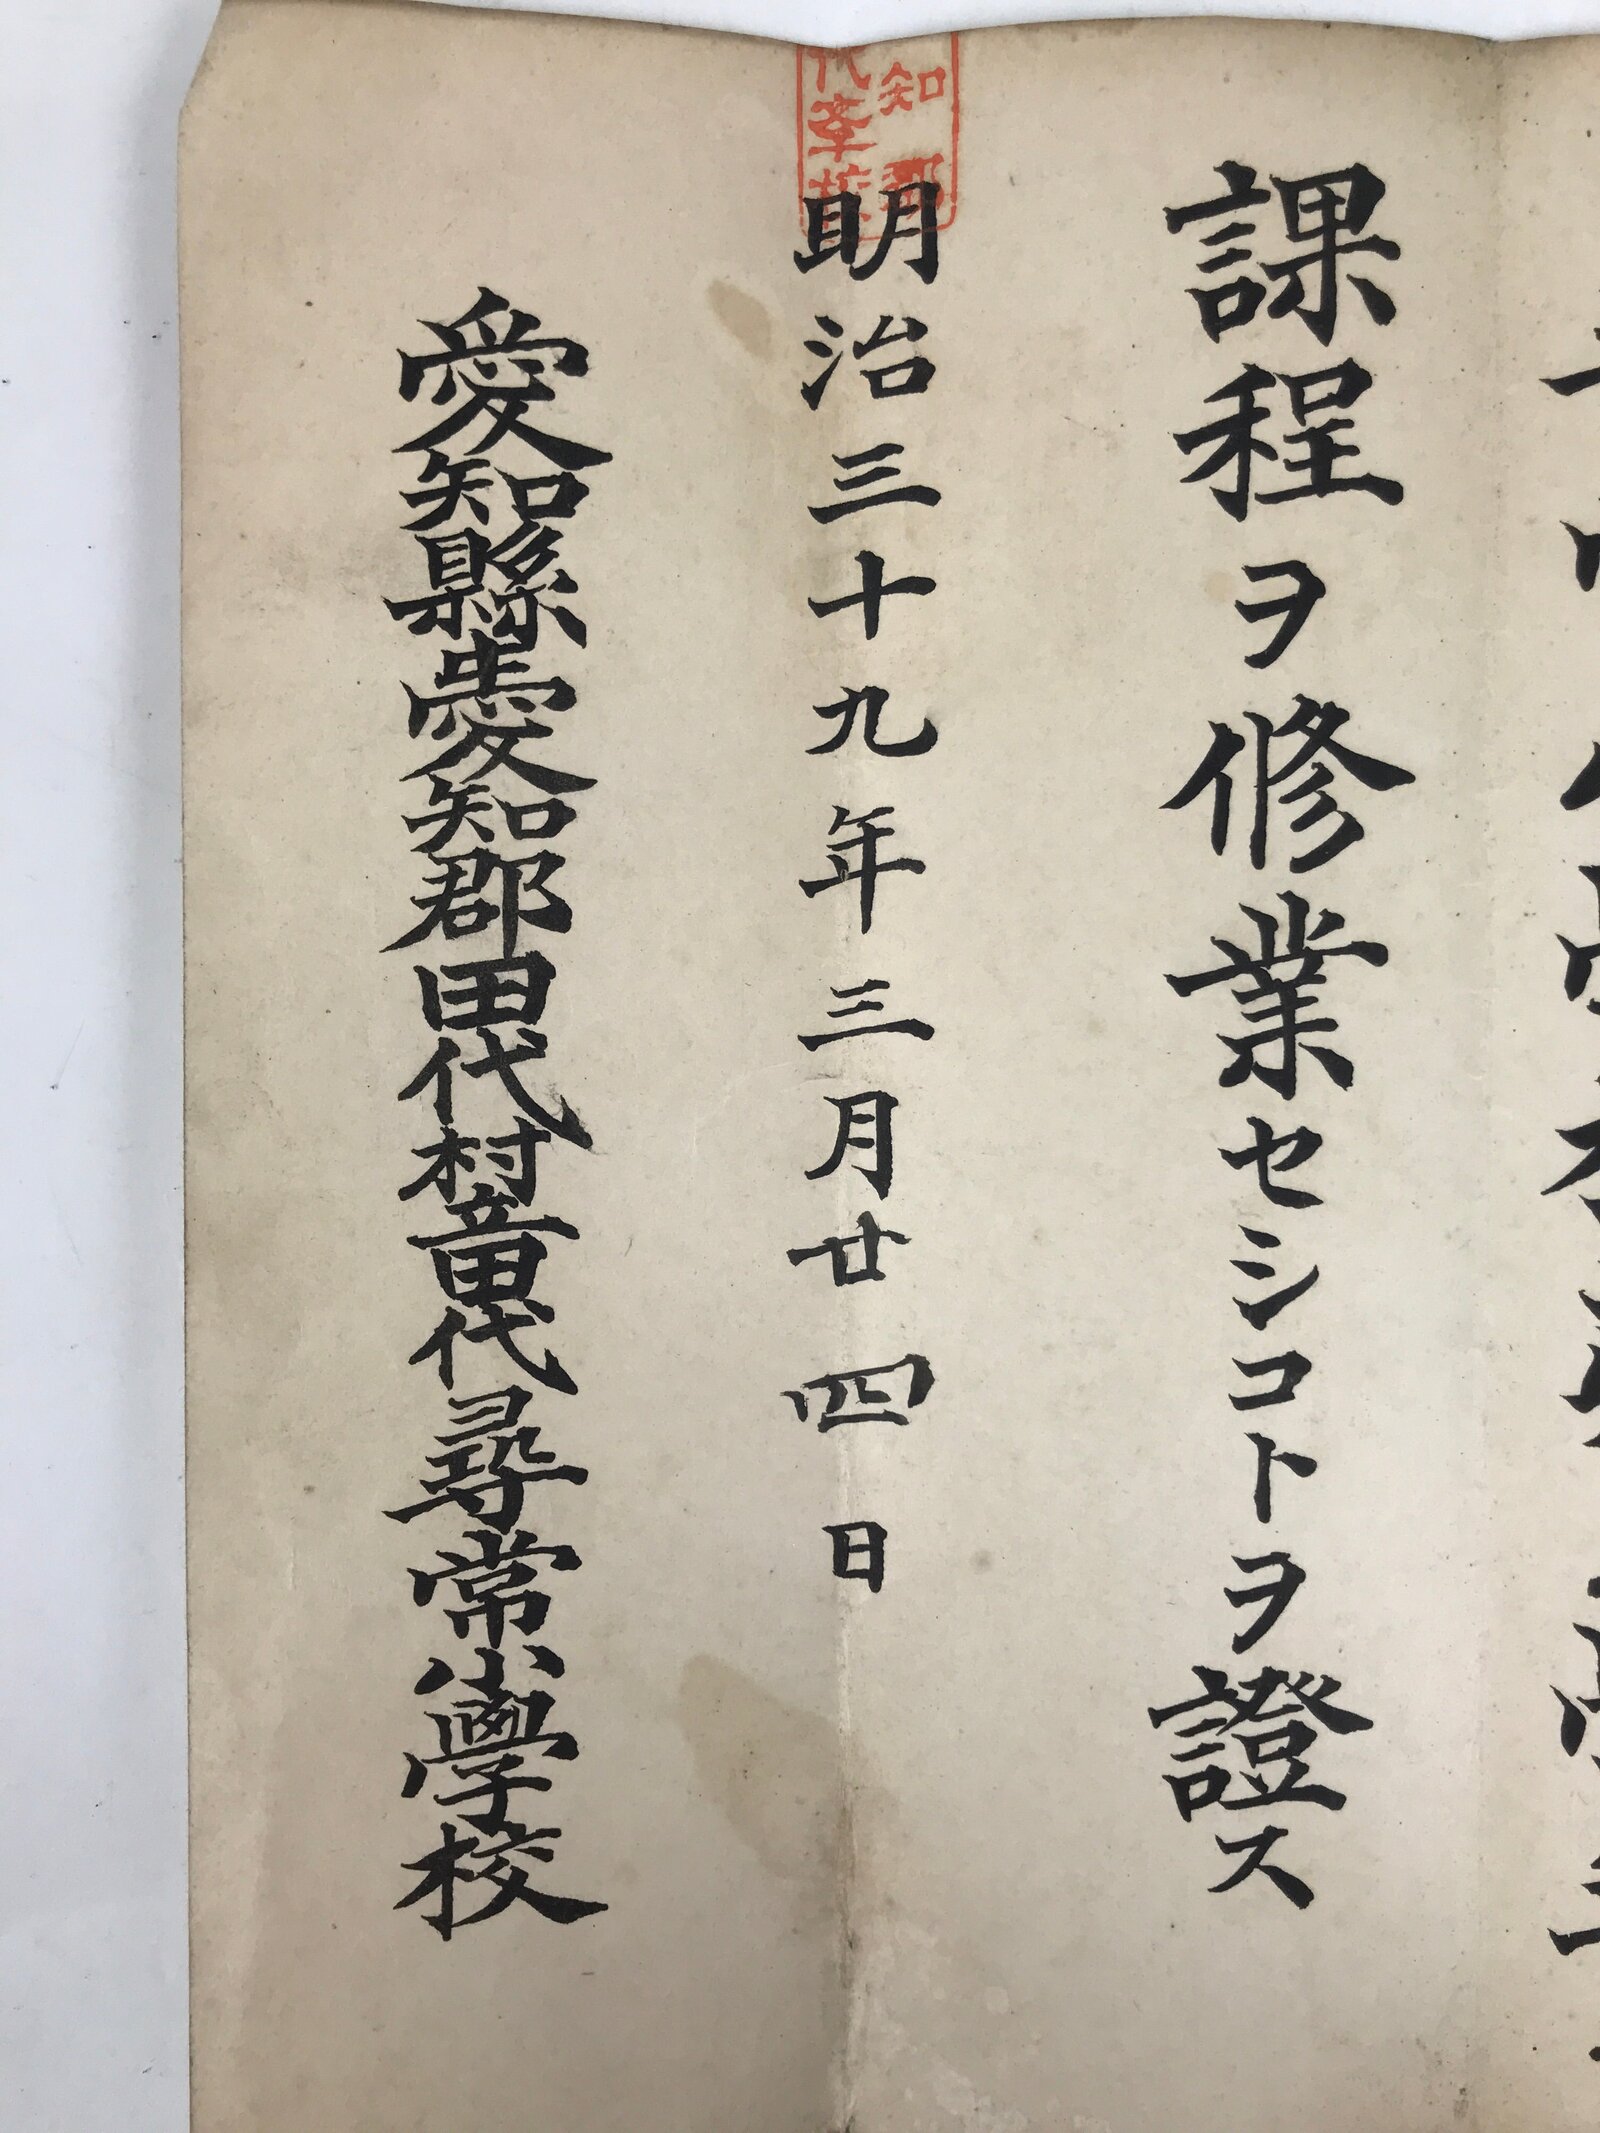 課程ヲ修業セシコトヲ證ス
知郡
明治三十九年三月廿四日
愛知縣愛知郡田代村立田代尋常小學校